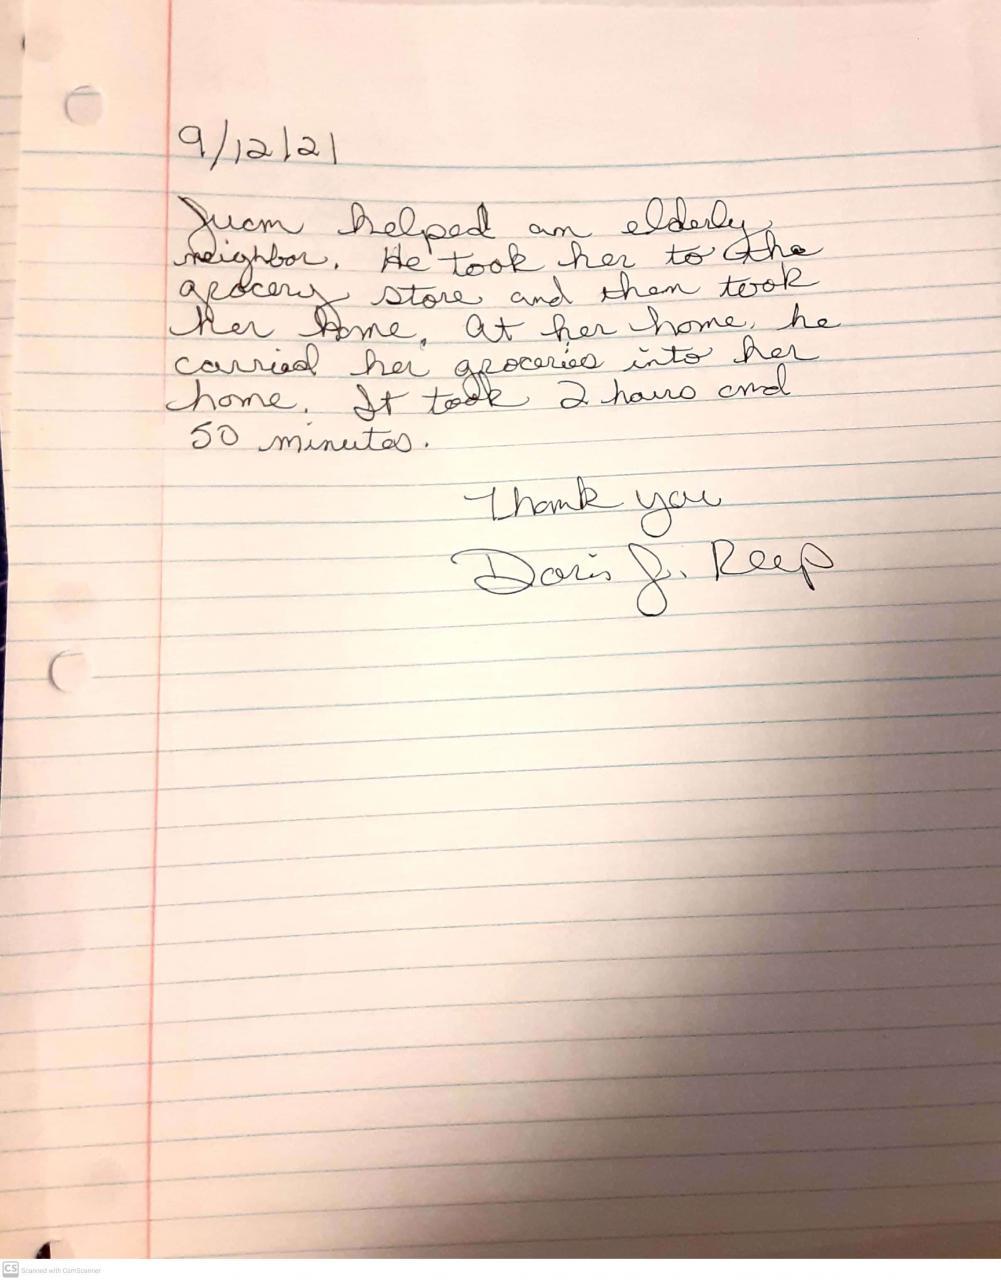 9/12/21
Juan helped an elderly
neighbor. He took her to the
grocery store and then took
her home. At her home, he
carried her groceries into her
home. It took 2 hours and
50 minutes.
Thank you
Doris J. Reep
CS Scanned with CamScanner